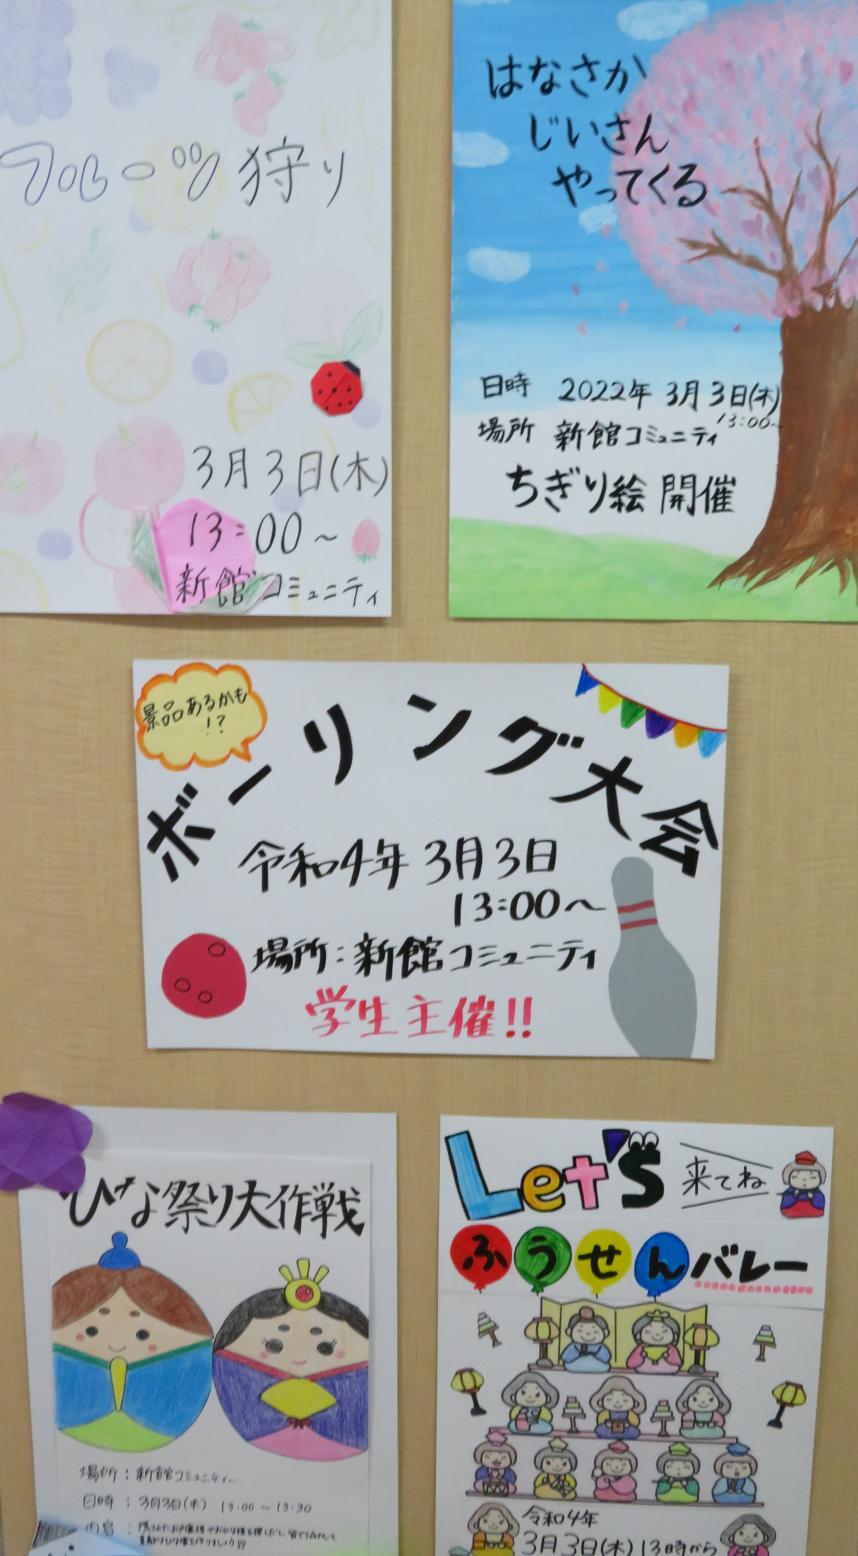 フルーツ狩り
3月3日(木)
13:00~
新館コミュニティ
はなさか
じいさん
やってくる
日時 2022年 3月3日(木)
13:00~
場所 新館コミュニティ
ちぎり絵 開催
景品あるかも
!?
ボーリング大会
令和4年 3月3日
13:00~
場所:新館コミュニティ
学生主催!!
ひな祭り大作戦
場所:新館コミュニティー
日時:3月3日(木) 13:00~13:30
内容:
Let's 来てね
ふうせんバレー
令和4年
3月3日(木)13時から